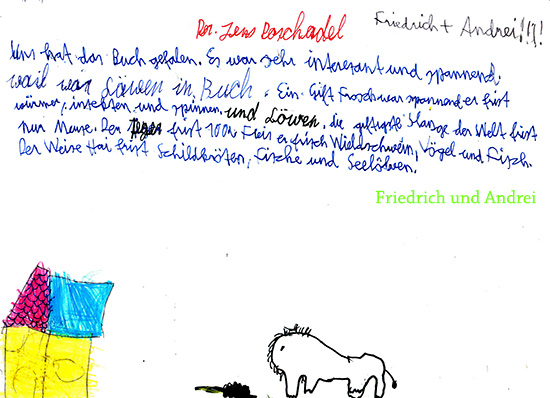 Dr. Jens Poschadel
Friedrich + Andrei!!!!
Uns hat das Buch gefalen. Es war sehr interesant und spannend,
wail war Löwen in Buch. Ein Gift Frosch war spannend er frist
würmer, insekten und spinnen und Löwen, die giftigste Slange der Welt frist
nur Meuse. Der Tiger frist 100k Fleis er frisch Wieldschwein, Vögel und Fisch.
Der Weise Hai frist Schildkröten, Fische und Seelöwen.
Friedrich und Andrei